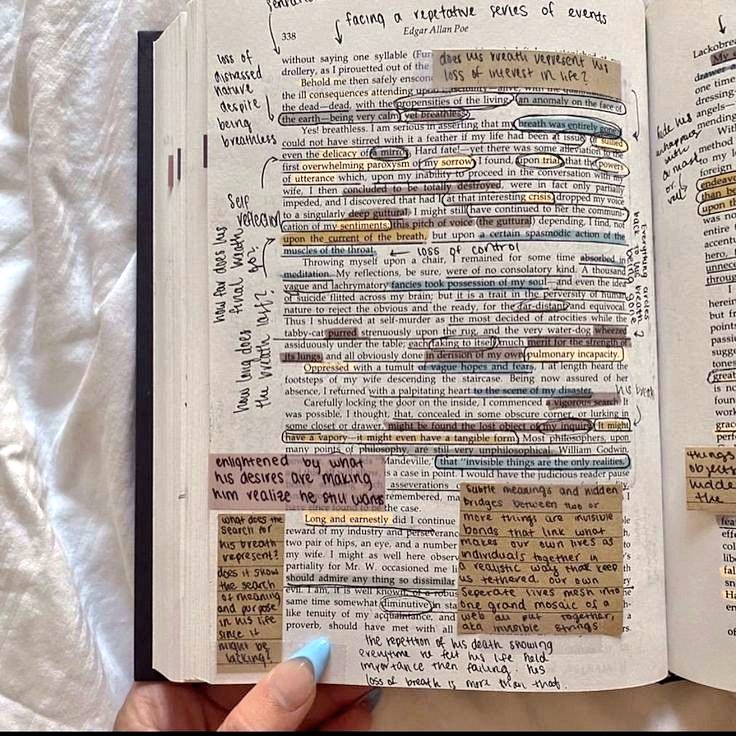 facing a repetative series of events
338
Edgar Allan Poe
loss of
distressed
nature
despite
being
breathless
does his breath represent his
loss of interest in life?
without saying one syllable
drollery, as I pirouetted out of the
Behold me then safely
the ill consequences attending upon
the dead—dead, with the propensities of the living—an anomaly on the face of
the earth—being very calm, yet breathless.
Yes! breathless. I am serious in asserting that my breath was entirely gone.
could not have stirred with it a feather if my life had been at issue, or sullied
even the delicacy of a mirror. Hard fate!—yet there was some alleviation to the
first overwhelming paroxysm of my sorrow. I found, upon trial, that the powers
of utterance which, upon my inability to proceed in the conversation with my
wife, I then concluded to be totally destroyed, were in fact only partially
impeded, and I discovered that had I at that interesting crisis, dropped my voice
to a singularly deep guttural, I might still have continued to her the communi-
cation of my sentiments; this pitch of voice (the guttural) depending, I find, not
upon the current of the breath, but upon a certain spasmodic action of the
muscles of the throat.
loss of control
Self
reflection
how far does his
final breath
go?
how long does
the breath last?
Throwing myself upon a chair, I remained for some time absorbed in
meditation. My reflections, be sure, were of no consolatory kind. A thousand
vague and lachrymatory fancies took possession of my soul—and even the idea
of suicide flitted across my brain; but it is a trait in the perversity of human
nature to reject the obvious and the ready, for the far-distant and equivocal.
Thus I shuddered at self-murder as the most decided of atrocities while the
tabby-cat purred strenuously upon the rug, and the very water-dog wheezed
assiduously under the table; each taking to itself much merit for the strength of
its lungs, and all obviously done in derision of my own pulmonary incapacity.
Oppressed with a tumult of vague hopes and fears, I at length heard the
footsteps of my wife descending the staircase. Being now assured of her
absence, I returned with a palpitating heart to the scene of my disaster.
his breath
Carefully locking the door on the inside, I commenced a vigorous search. It
was possible, I thought, that, concealed in some obscure corner, or lurking in
some closet or drawer, might be found the lost object of my inquiry. It might
have a vapory—it might even have a tangible form. Most philosophers, upon
many points of philosophy, are still very unphilosophical. William Godwin,
Mandeville," that "invisible things are the only realities,"
is a case in point. I would have the judicious reader pause
asseverations
remembered, ma
the case.
enlightened by what
his desires are making
him realize he still wants
Long and earnestly did I continue
reward of my industry and perseverance
two pair of hips, an eye, and a number
my wife. I might as well here observ
partiality for Mr. W. occasioned me li
should admire any thing so dissimilar
evil. I am, it is well known, of a robus
same time somewhat diminutive in sta
like tenuity of my acquaintance, and
proverb, should have met with all
what does the
search for
his breath
represent?
does it show
the search
of meaning
and purpose
in his life
since it
might be
lacking?
subtle meanings and hidden
bridges between two or
more things are invisible
bonds that link what
makes our own lives as
individuals together in
a realistic way that keep
us tethered our own
seperate lives mesh into
one grand mosaic of a
web all put together,
aka invisible strings
the repetition of his death showing
everytime he felt his life held
importance then failing. his
loss of breath is more than that.
things
objects
hidde
the